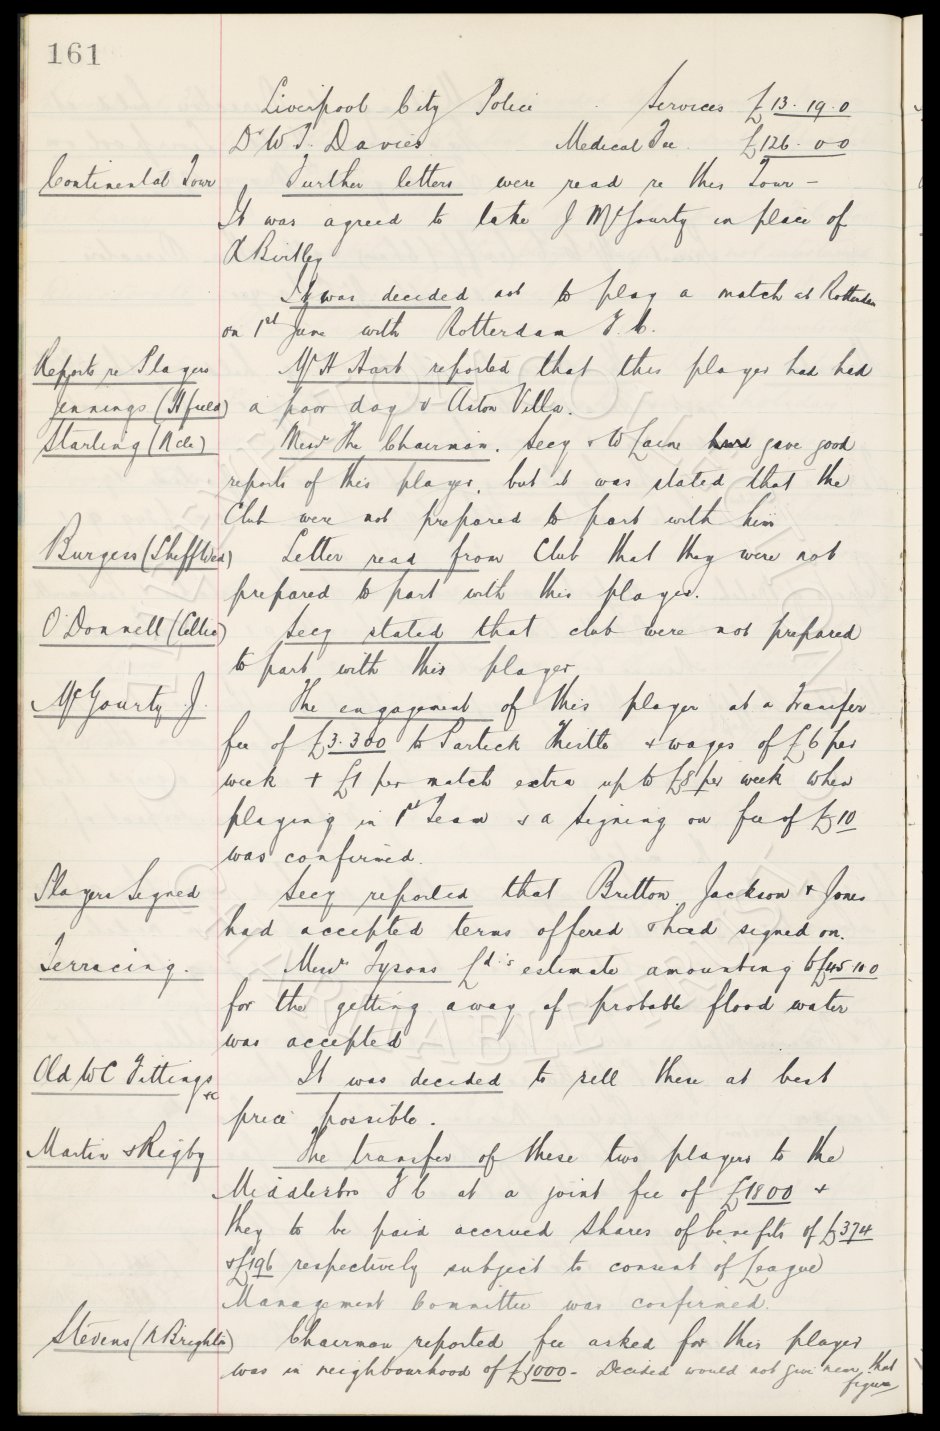 161
Liverpool City Police Services £13.19.0
Dr W J. Davies Medical Fee. £126.0.0
Continental Tour Further letters were read re this Tour -
It was agreed to take J McGourty in place of
Birtley
It was decided not to play a match at Rotterdam
on 1st June with Rotterdam F.C.
Reports re Players Mr H Hart reported that this player had had
Jennings (Hfield) a poor day v Aston Villa.
Starling (Ncle) Messrs The Chairman. Secy & W gave good
reports of this player, but it was stated that the
Club were not prepared to part with him
Burgess (Sheff Wed) Letter read from Club that they were not
prepared to part with this player.
O'Donnell (Celtic) Secy stated that club were not prepared
to part with this player
McGourty J. The engagement of this player at a Transfer
fee of £3.300 to Partick Thistle & wages of £6 per
week + £1 per match extra up to £8 per week when
playing in 1st Team & a signing on fee of £10
was confirmed.
Players Signed Secy reported that Britton, Jackson & Jones
had accepted terms offered & had signed on.
Terracing. Messrs Tysons Ld's estimate amounting to £45.10.0
for the getting away of probable flood water
was accepted
Old WC Fittings &c It was decided to sell these at best
price possible.
Martin & Rigby The transfer of these two players to the
Middlesbro F C at a joint fee of £1800 &
they to be paid accrued shares of benefits of £374
& £196 respectively subject to consent of League
Management Committee was confirmed.
Stevens (N Brighton) Chairman reported fee asked for this player
was in neighbourhood of £1000 - Decided would not give near that
figure